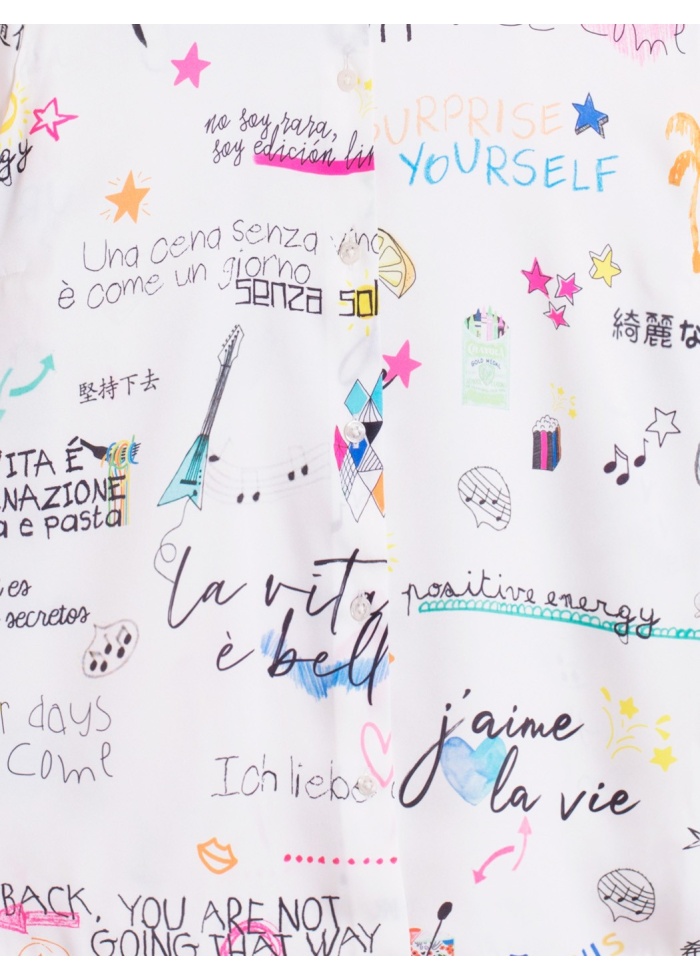 no soy rara,
soy edición lim
SURPRISE
YOURSELF
gy
Una cena senza vino
è come un giorno
senza sol
綺麗な
堅持下去
VITA É
NAZIONE
a e pasta
GOLD MEDAL
es
secretos
la vita
è bell
positive energy
r days
come
j'aime
la vie
Ich liebe
BACK, YOU ARE NOT
GOING THAT WAY
come
us